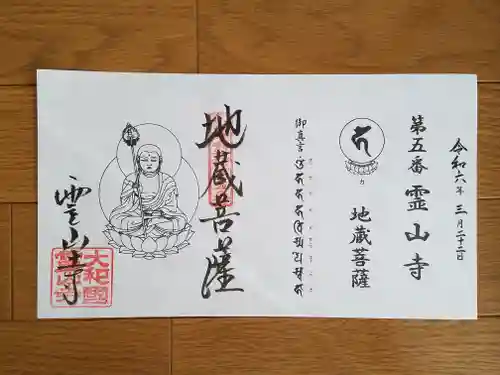 令和六年三月二十二日
第五番 霊山寺
カ
地蔵菩薩
御真言
地蔵菩薩
霊山寺